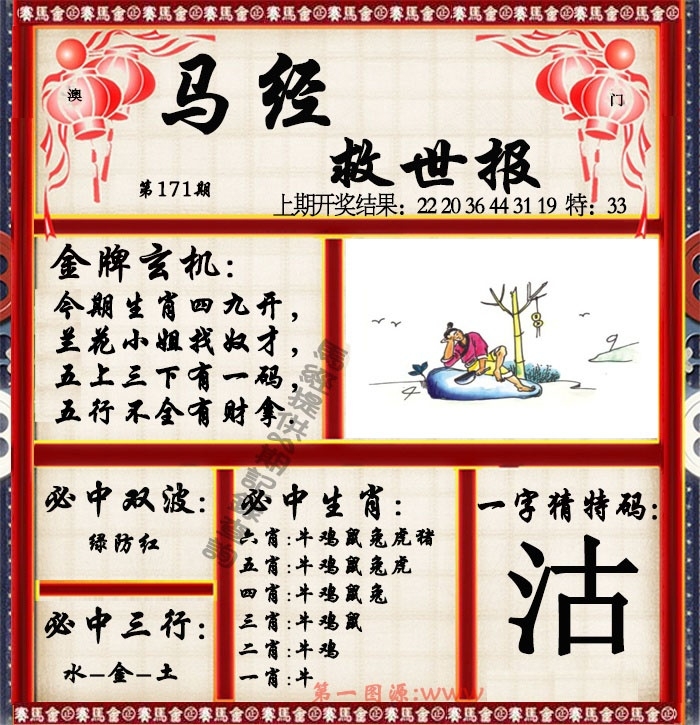 賽馬會金正賽馬會金正賽馬會金正賽馬會金正賽馬會金正賽馬會
澳
门
马经
救世报
第171期
上期开奖结果：22 20 36 44 31 19 特：33
金牌玄机：
今期生肖四九开，
兰花小姐找奴才，
五上三下有一码，
五行不全有财拿.
必中双波：
绿防红
必中三行：
水-金-土
必中生肖：
六肖：牛鸡鼠兔虎猪
五肖：牛鸡鼠兔虎
四肖：牛鸡鼠兔
三肖：牛鸡鼠
二肖：牛鸡
一肖：牛
一字猜特码：
沽
第一图源：www